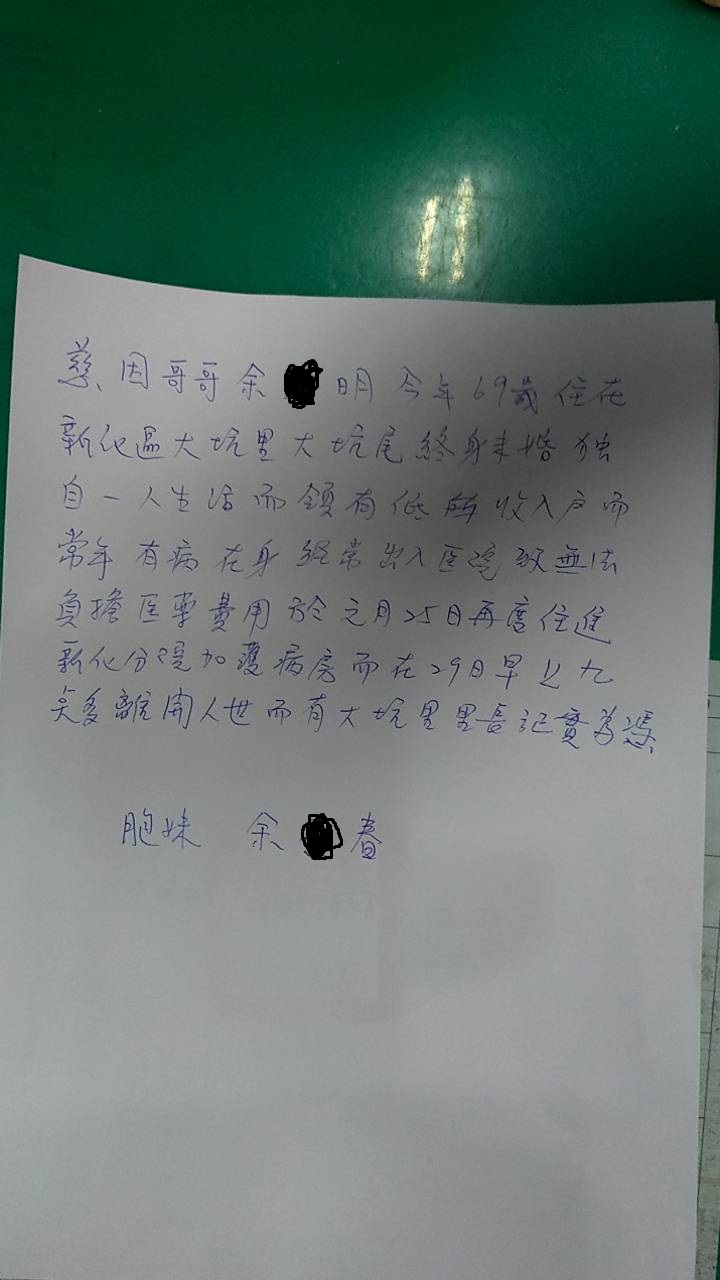 茲因哥哥余明今年69歲住在
新化區大坑里大坑尾終身未婚独
自一人生活而領有低所收入戶而
常年有病在身經常出入医院致無法
負擔医藥費用於元月25日再度住進
新化分院加護病房而在29日早上九
点多離開人世而有大坑里里長記實為憑
胞妹 余春